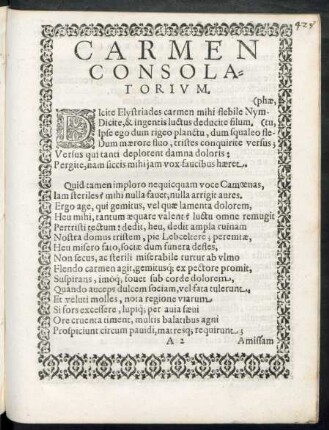 CARMEN
CONSOLA-
TORIVM.
(phæ,
DIcite Elystriades carmen mihi flebile Nym-
Dicite, & ingentis luctus deducite filum, (tu,
Ipse ego dum rigeo planctu, dum squaleo fle-
Dum mærore fluo, tristes conquirite versus;
Versus qui tanti deplorent damna doloris;
Pergite, nam siccis mihi jam vox faucibus hæret.
Quid tamen imploro nequicquam voce Camœnas,
Iam steriles? mihi nulla favet, nulla arrigit aures.
Ergo age, qui gemitus, vel quæ lamenta dolorem,
Heu mihi, tantum æquare valent? luctu omne remugit
Pertristi tectum: dedit, heu, dedit ampla ruinam
Nostra domus tristem, pie
Heu misero fato, sociæ dum funera defles,
Non secus, ac sterili miserabile turtur ab vlmo
Flendo carmen agit, gemitusq; ex pectore promit,
Suspirans, imoq; fovet sub corde dolorem,
Quando auceps dulcem sociam, vel fata tulerunt.
Et veluti molles, nota regione viarum
Si fors excessere, lupiq; per avia sævi
Ore cruenta timent, multis balatibus agni
Prospiciunt circum pavidi, matresq; requirunt;
A 2 Amissam